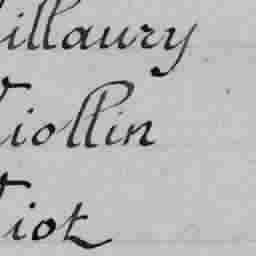 illaury
Viollin
Viot